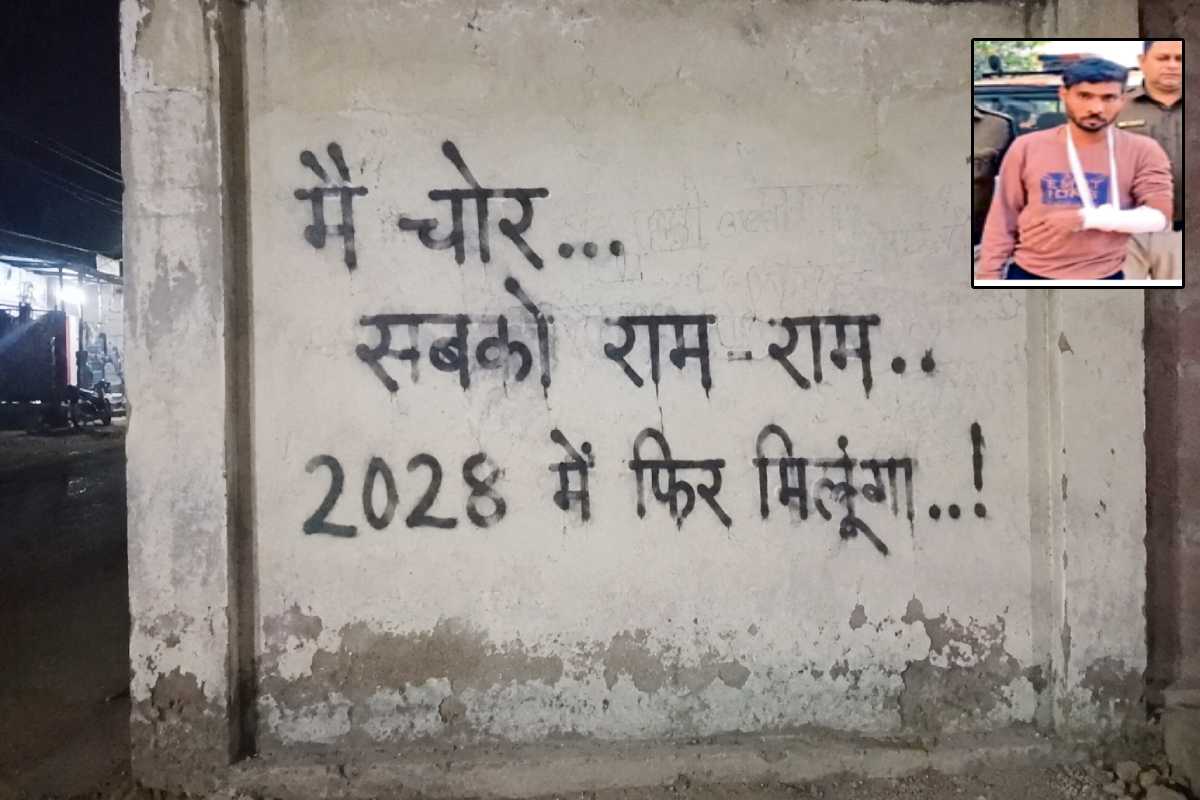 मै चोर...
सबको राम-राम..
2028 में फिर मिलूंगा..!